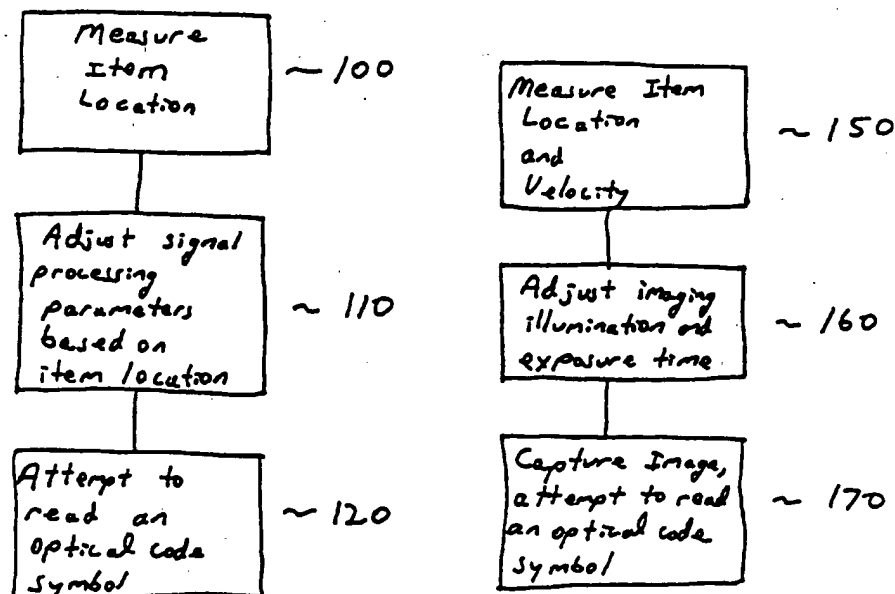 Measure
Item
Location
~ 100
Adjust signal
processing
parameters
based on
item location
~ 110
Attempt to
read an
optical code
symbol
~ 120
Measure Item
Location
and
Velocity
~ 150
Adjust imaging
illumination and
exposure time
~ 160
Capture Image,
attempt to read
an optical code
symbol
~ 170